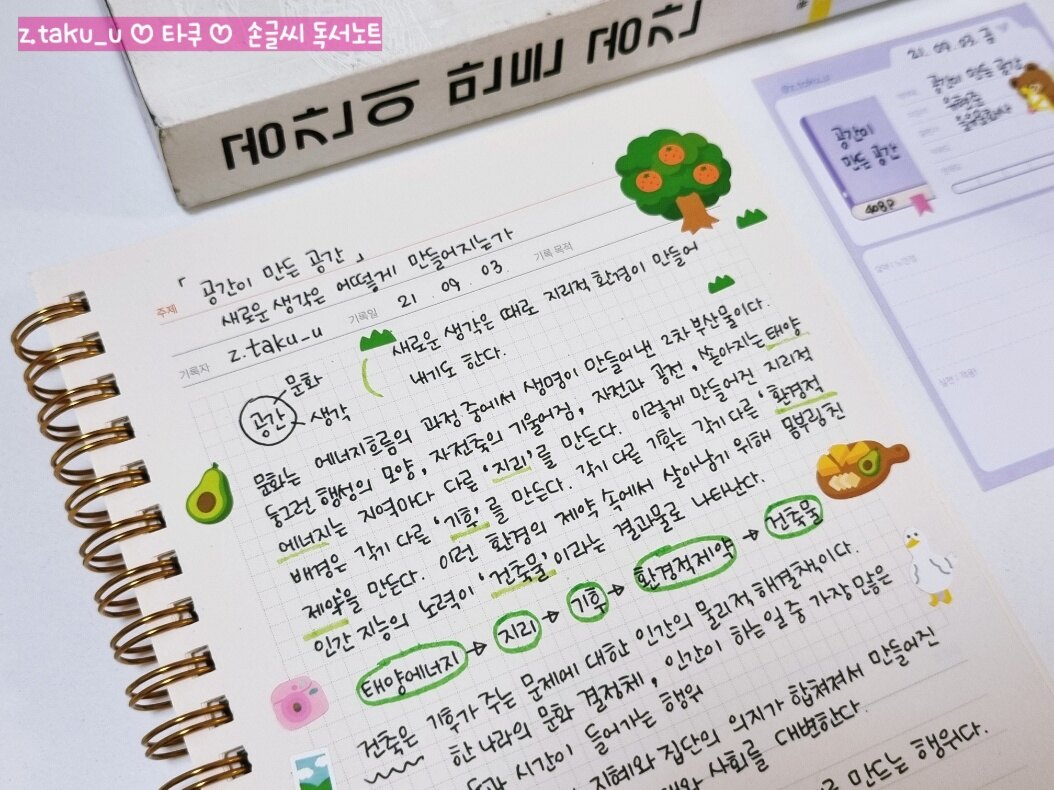 z.taku_u ♡ 타쿠 ♡ 손글씨 독서노트
공간이 만든 공간
「공간이 만든 공간」
주제 새로운 생각은 어떻게 만들어지는가
기록자 z.taku_u 기록일 21. 09. 03. 기록 목적
공간 문화 생각
새로운 생각은 때로 지리적 환경이 만들어
내기도 한다.
문화는 에너지흐름의 과정 중에서 생명이 만들어낸 2차 부산물이다.
둥그런 행성의 모양, 자전축의 기울어짐, 자전과 공전, 쏟아지는 태양
에너지는 지역마다 다른 '지리'를 만든다. 이렇게 만들어진 지리적
배경은 각기 다른 '기후'를 만든다. 각기 다른 기후는 각기 다른 '환경적
제약'을 만든다. 이런 환경의 제약 속에서 살아남기 위해 몸부림친
인간 지능의 노력이 '건축물'이라는 결과물로 나타난다.
태양에너지 → 지리 → 기후 → 환경적제약 → 건축물
건축은 기후가 주는 문제에 대한 인간의 물리적 해결책이다.
한 나라의 문화 결정체, 인간이 하는 일 중 가장 많은
시간이 들어가는 행위
지혜와 집단의 의지가 합쳐져서 만들어진
사회를 대변한다.
로 만드는 행위다.
@z.taku_u
21. 09. 03. 금
공간이 만든 공간
유현준
을유문화사
공간이
만든 공간
408P